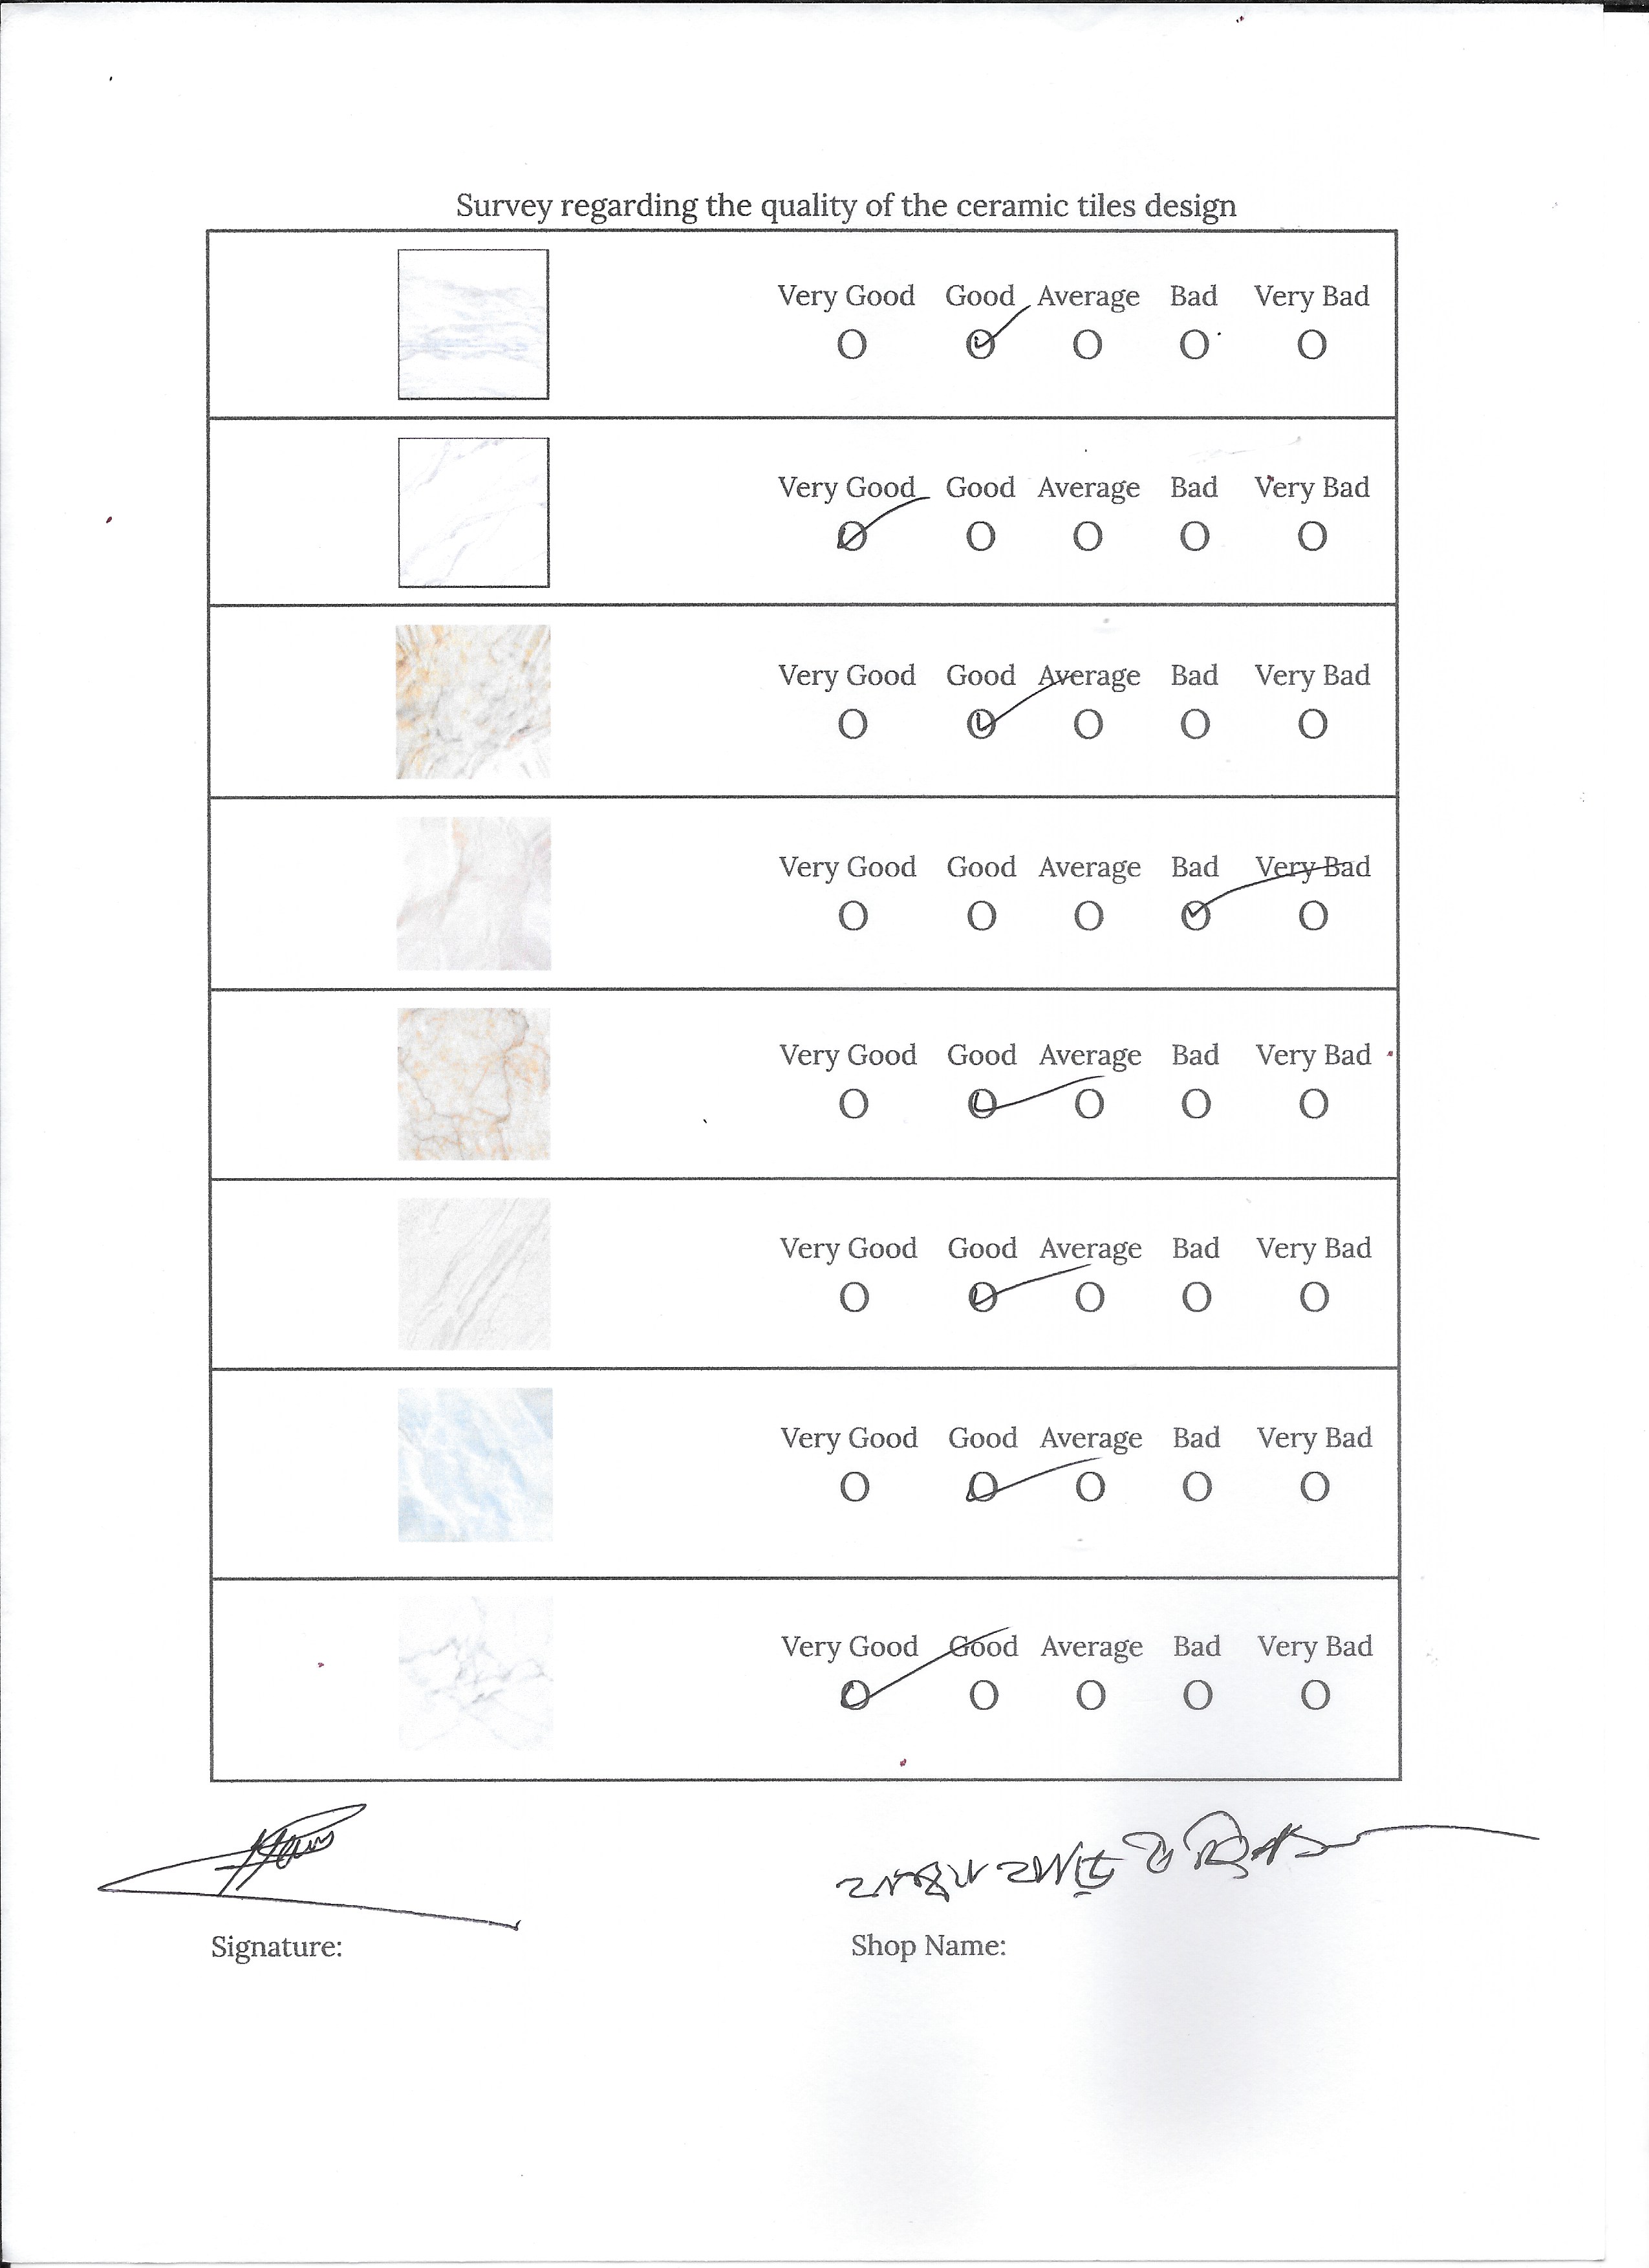 Survey regarding the quality of the ceramic tiles design
Very Good Good Average Bad Very Bad
Very Good Good Average Bad Very Bad
Very Good Good Average Bad Very Bad
Very Good Good Average Bad Very Bad
Very Good Good Average Bad Very Bad
Very Good Good Average Bad Very Bad
Very Good Good Average Bad Very Bad
Very Good Good Average Bad Very Bad
Signature:
Shop Name: